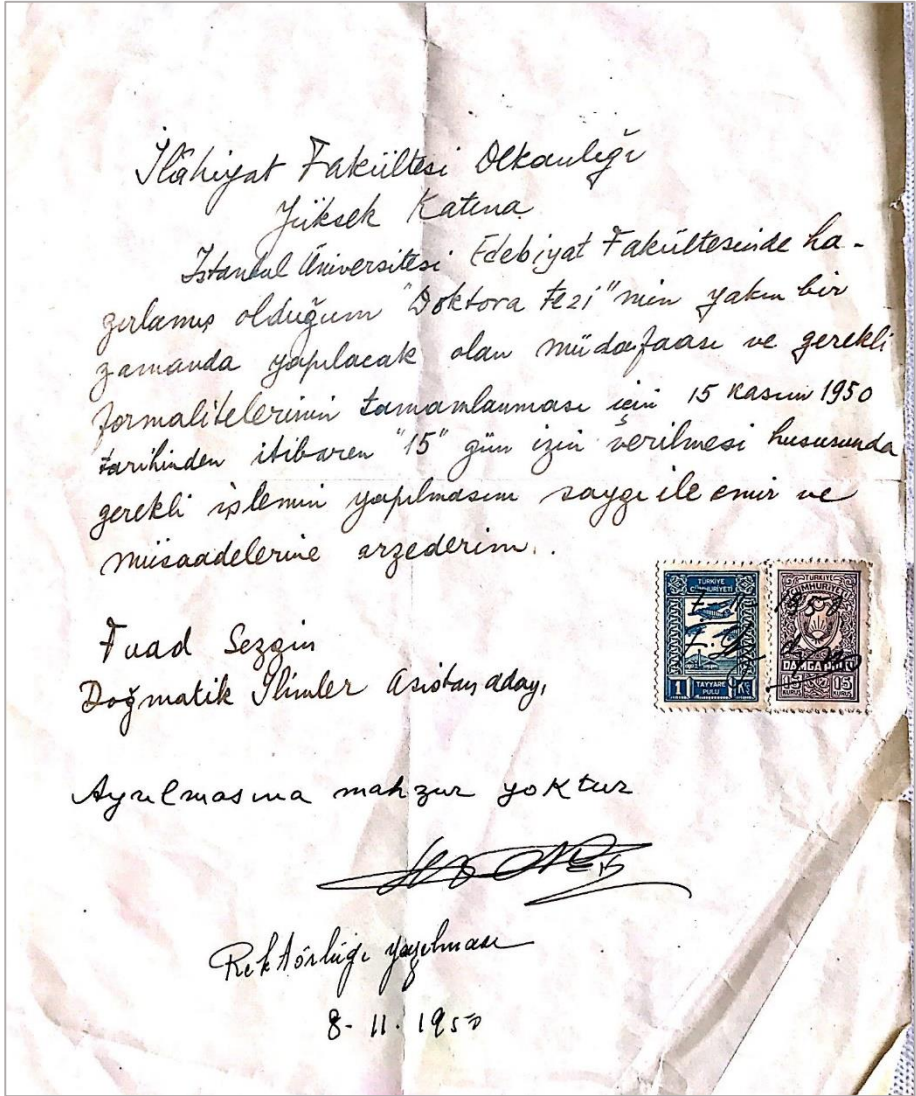 İlâhiyat Fakültesi Dekanlığı
Yüksek Katına
İstanbul Üniversitesi Edebiyat Fakültesinde ha-
zırlamış olduğum "Doktora tezi"min yakın bir
zamanda yapılacak olan müdafaası ve gerekli
formalitelerinin tamamlanması için 15 Kasım 1950
tarihinden itibaren "15" gün izin verilmesi hususunda
gerekli işlemin yapılmasını saygı ile emir ve
müsaadelerine arzederim.
TÜRKİYE CÜMHURİYETİ
1 TAYYARE PULU KŞ
TÜRKİYE CUMHURİYETİ
DAMGA PULU
15 KURUŞ 15 KURUŞ
Fuad Sezgin
Doğmatik İlimler Asistan adayı
Ayrılmasına mahzur yoktur
Rektörlüğe yazılması
8-11-1950